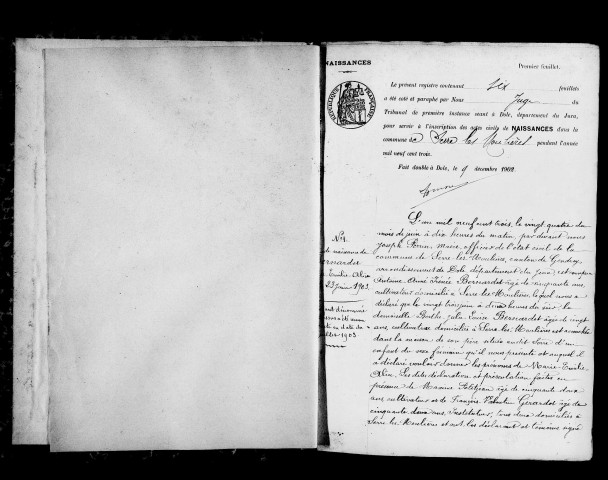 NAISSANCES
Premier feuillet.
RÉPUBLIQUE FRANÇAISE
Le présent registre contenant six feuillets
a été coté et paraphé par Nous Juge du
Tribunal de première instance séant à Dole, département du Jura,
pour servir à l'inscription des actes civils de NAISSANCES dans la
commune de Serre les Moulières pendant l'année
mil neuf cent trois.
Fait double à Dole, le 9 décembre 1902.
N° 1.
de naissance de
Bernardet
Emilie Alix
23 Juin 1903.
L'an mil neuf cent trois, le vingt quatre du
mois de juin à dix heures du matin, par devant nous
Joseph maire, officier de l'état civil de la
commune de Serre les Moulières, canton de Gendrey,
arrondissement de Dole département du Jura, est comparu
Antoine Aimé Bernardet âgé de cinquante ans,
cultivateur domicilié à Serre les Moulières, lequel nous a
déclaré que le vingt trois juin à heures du soir la
demoiselle Julie Louise Bernardet âgée de vingt
ans, cultivatrice domiciliée à Serre les Moulières est accouchée
dans la maison de son père située audit Serre d'un
enfant du sexe féminin qu'il nous présente et auquel il
a déclaré vouloir donner les prénoms de Marie Emilie
Alix. Les dites déclaration et présentation faites en
présence de âgé de cinquante deux
ans cultivateur et de François Valentin Girardot âgé de
cinquante deux ans, Instituteur, tous deux domiciliés à
Serre les Moulières et ont les déclarant et témoins signé